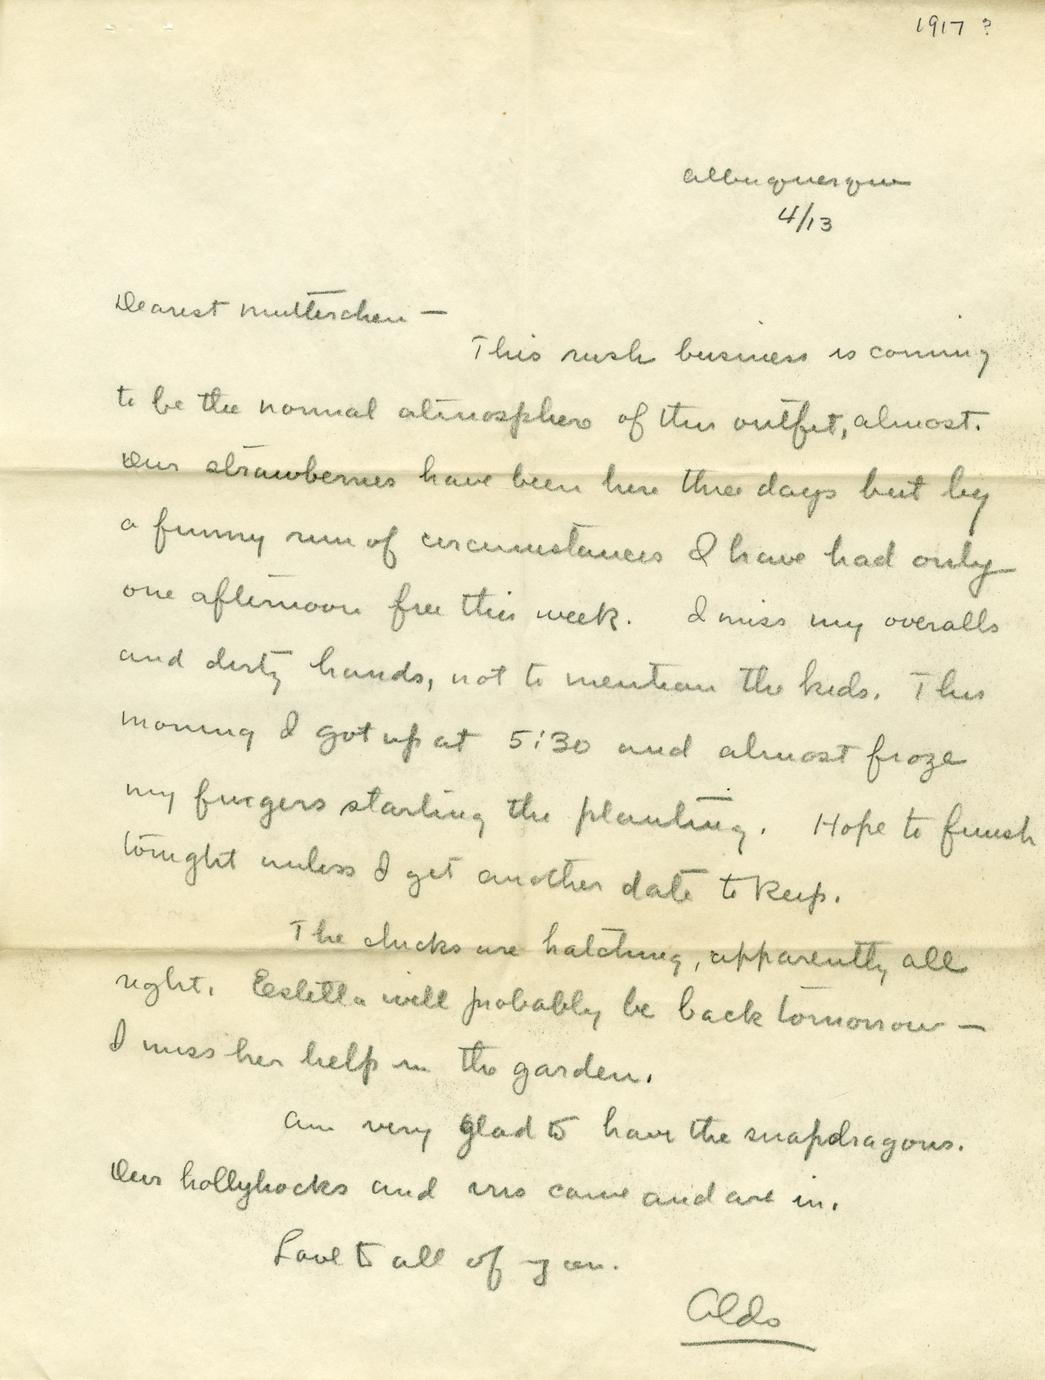 1917 ?
Albuquerque
4/13
Dearest Mutterchen —
This rush business is coming
to be the normal atmosphere of this outfit, almost.
Our strawberries have been here three days but by
a funny run of circumstances I have had only
one afternoon free this week. I miss my overalls
and dirty hands, not to mention the kids. This
morning I got up at 5:30 and almost froze
my fingers starting the planting. Hope to finish
tonight unless I get another date to keep.
The chicks are hatching, apparently all
right. Estella will probably be back tomorrow —
I miss her help in the garden.
Am very glad to have the snapdragons.
Our hollyhocks and iris came and are in.
Love to all of you.
Aldo